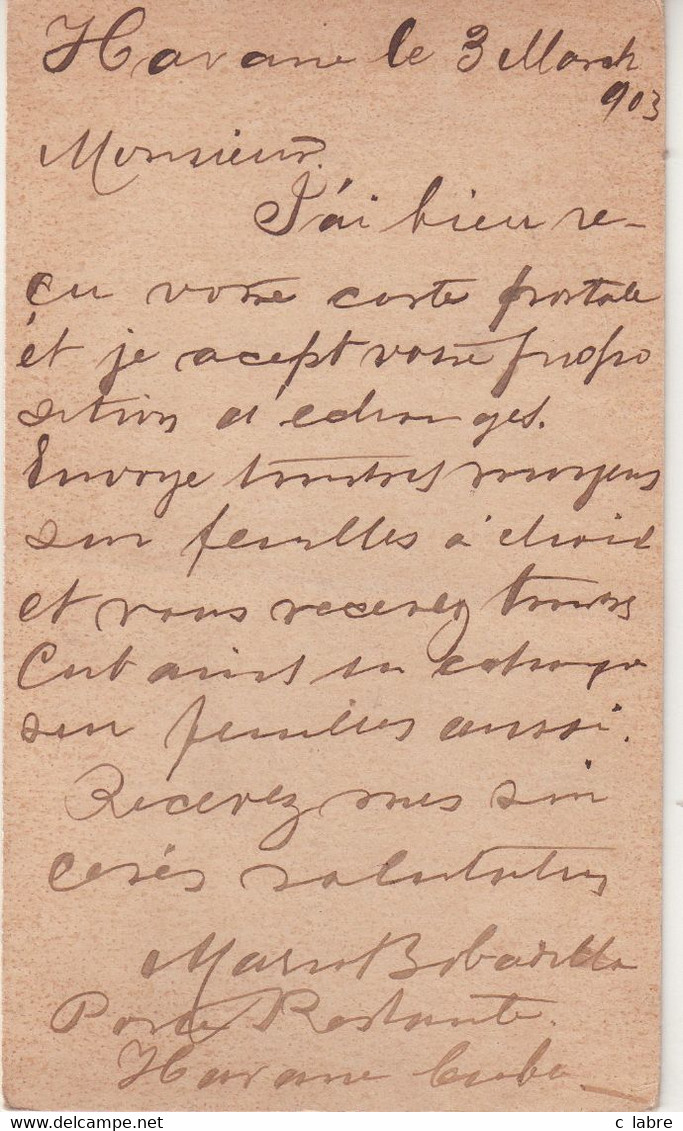 Havane le 3 March
903
Monsieur.
J'ai bien re-
çu votre carte postale
et je acept votre propo
sition d'echanges.
Envoye timbres moyens
sur feuilles à choix
et vous recevrez timbres
Cubains en echange
sur feuilles aussi.
Recevez mes sin
cerés salutations
Mario Bobadilla
Poste Restante.
Havane Cuba
c labre